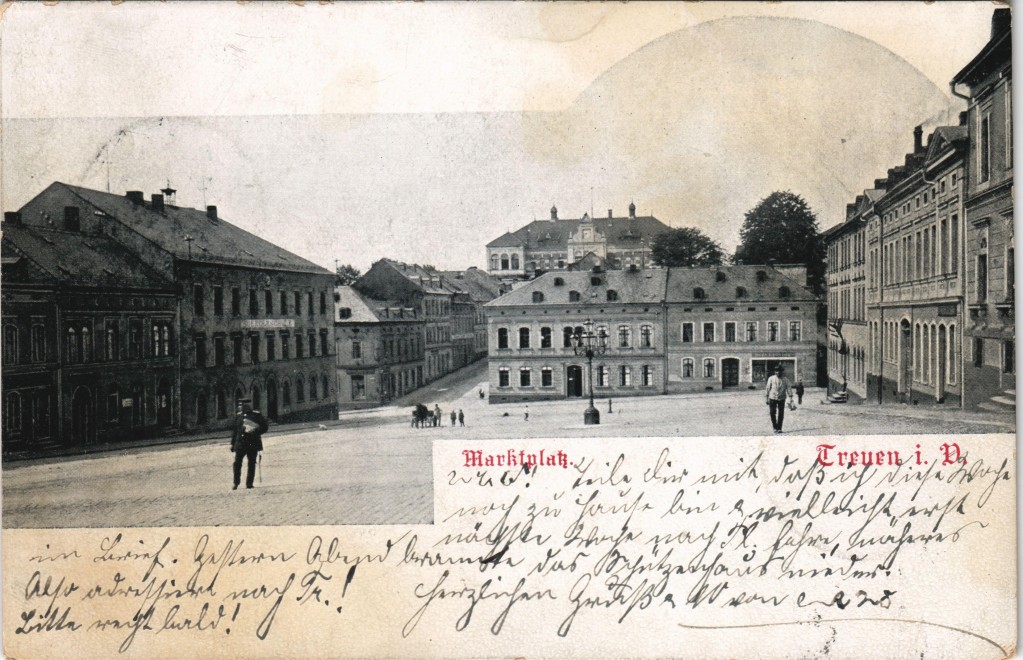 Marktplatz.
Treuen i. V
Teile Dir mit, daß ich diese Woche
noch zu Hause bin & vielleicht erst
nächste Woche nach Pl. fahre, näheres
im Brief. Gestern Abend brannte das Schützenhaus nieder.
Also adressiere nach Tr.!
Herzlichen Gruß & von
Bitte recht bald!